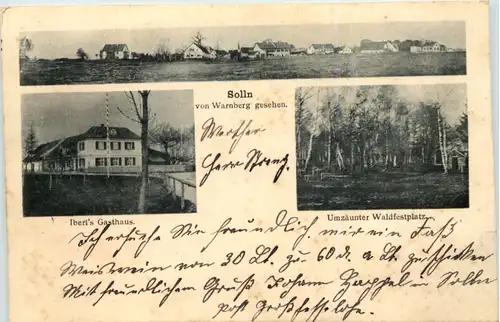 Solln
von Warnberg gesehen.
Werther
Herr Sprenz,
Ibert's Gasthaus.
Umzäunter Waldfestplatz.
Ich ersuche Sie freundlich mir ein Faß
Weiswein von 30 Lt. zu 60 d. a Lt. zu schicken
Mit freundlichem Gruß Johann Happel in Solln
post Großhesselohe.